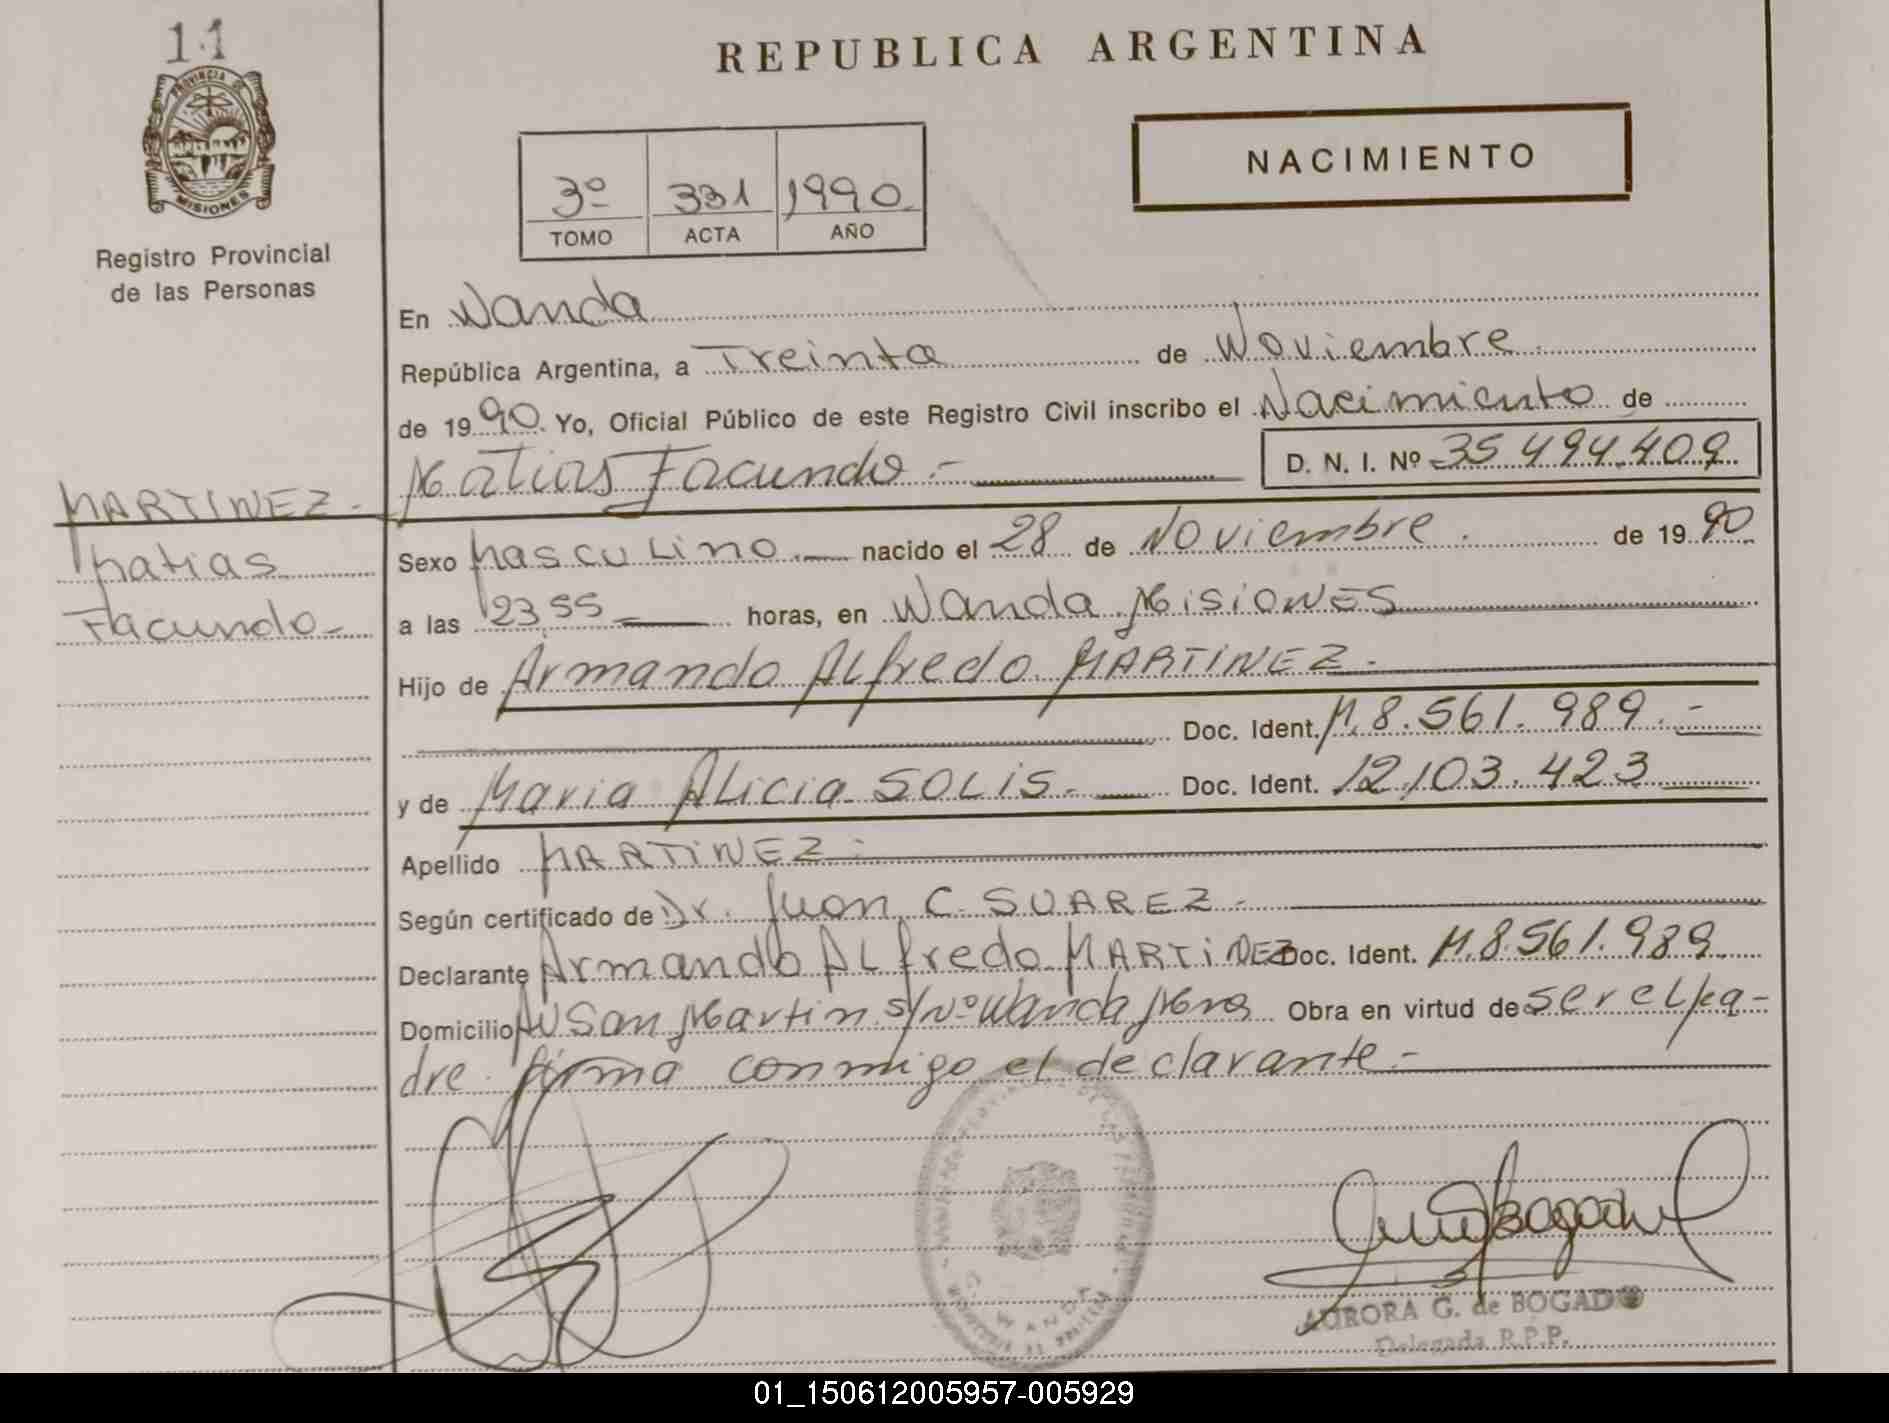 11
PROVINCIA DE
MISIONES
Registro Provincial
de las Personas
MARTINEZ -
Matias
Facundo -
REPUBLICA ARGENTINA
NACIMIENTO
3º 331 1990
TOMO ACTA AÑO
En Wanda
República Argentina, a Treinta de Noviembre
de 1990. Yo, Oficial Público de este Registro Civil inscribo el Nacimiento de
Matias Facundo .- D. N. I. Nº 35.494.409
Sexo Masculino .- nacido el 28 de Noviembre . de 1990
a las 23,55 horas, en Wanda Misiones
Hijo de Armando Alfredo MARTINEZ.
Doc. Ident. M.8.561.989.-
y de Maria Alicia SOLIS.- Doc. Ident. 12.103.423
Apellido MARTINEZ.
Según certificado de Dr. Juan C. SUAREZ.
Declarante Armando Alfredo MARTINEZ Doc. Ident. M.8.561.989.
Domicilio Av San Martin s/nº Wanda Mnes Obra en virtud de ser el pa-
dre. firma conmigo el declarante.-
WANDA
AURORA G. de BOGADO
Delegada R.P.P.
01_150612005957-005929